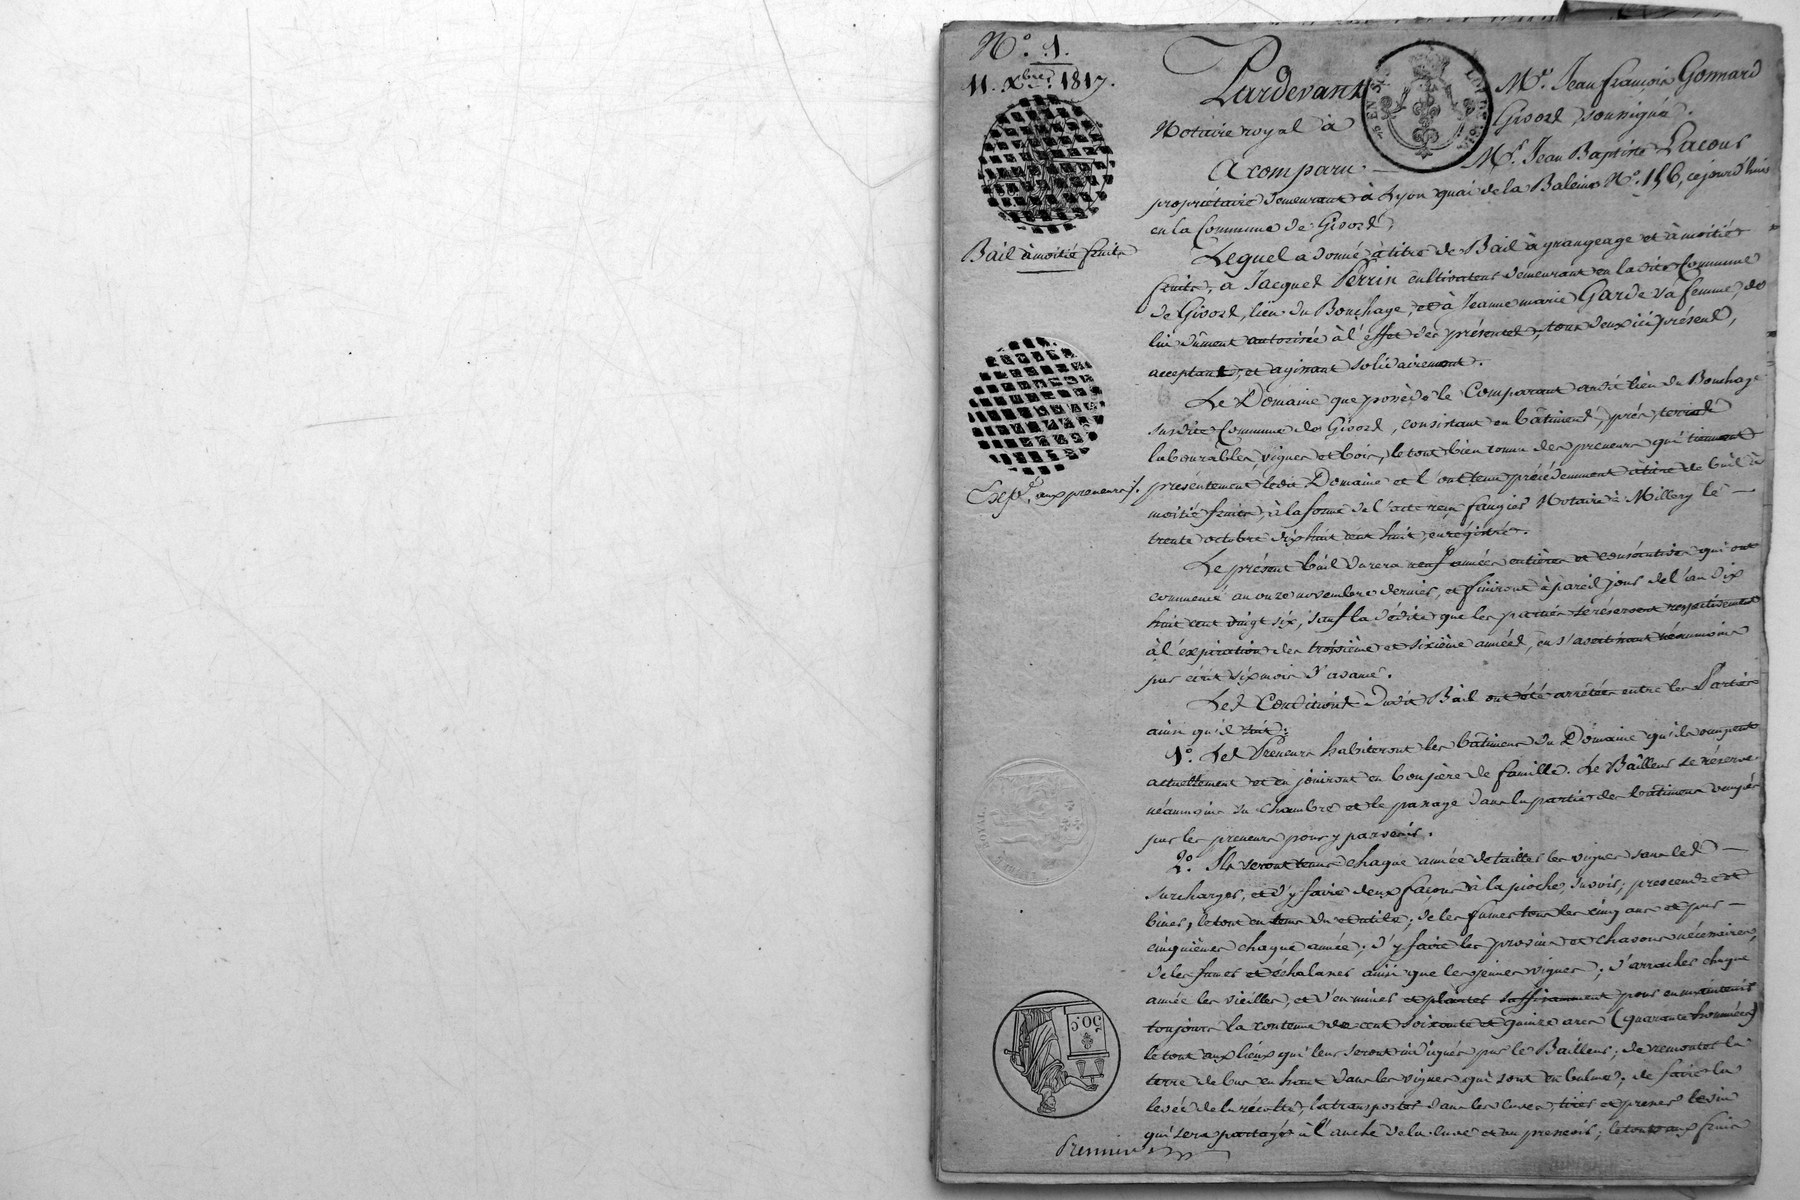 N.º 1.
11. Xbre. 1817.
Bail à moitié fruits
Exp.é aux preneurs /.
Pardevant Me. Jean françois Gonnard
Notaire royal à Givord, soussigné.
A comparu Mr. Jean Baptiste Lacour
propriétaire demeurant à Lyon quai de la Baleine No. 156, ce jourd'hui
en la Commune de Givord,
Lequel a donné à titre de Bail à grangeage et à moitié
fruits, a Jacques Perrin cultivateur demeurant en ladite Commune
de Givord, lieu du Bouchage, et à Jeanne marie Garde sa femme, de
lui dûment autorisée à l'effet des présentes, tous deux ici présens,
acceptant, et agissant solidairement.
Le Domaine que possède le Comparant audit lieu du Bouchage
susdite Commune de Givord, consistant en bâtimens, prés, terres
labourables, vignes et bois, le tout bien connu des preneurs qui tiennent
présentement ledit Domaine et l'ont tenu précédemment à titre de bail à
moitié fruits, à la forme de l'acte reçu Notaire à Millery le
trente octobre dix huit cent huit, enregistré.
Le présent bail durera neuf années entières et consécutives qui ont
commencé au onze novembre dernier, et finiront à pareil jour de l'an dix
huit cent vingt six, sauf la dédite que les parties se réservent respectivement
à l'expiration des troisième et sixième années, en s'avertissant néanmoins
par écrit six mois d'avance.
Les Conditions dudit Bail ont été arrêtées entre les Parties
ainsi qu'il suit:
1.º Les Preneurs habiteront les bâtimens du Domaine qu'ils occupent
actuellement et en jouiront en bon père de famille. Le Bailleur se réserve
néanmoins sa chambre et le passage dans la partie des bâtimens occupés
par les preneurs pour y parvenir.
2.º Ils seront tenus chaque année de tailler les vignes sans les
surcharger, et d'y faire deux façons à la pioche, savoir; et
biner, le tout en tems du et utile; de les fumer tous les cinq ans et par
cinquième chaque année; d'y faire les provins et nécessaires,
de les fumer et échalasser ainsi que les jeunes vignes; d'arracher chaque
année les vieilles, et d'en miner et planter suffisamment pour en maintenir
toujours la contenue de cent soixante et quinze ares (quarante hommées)
le tout aux lieux qui leur seront indiqués par le Bailleur; de remonter la
terre de bas en haut dans les vignes qui sont en balme; de faire la
levée de la récolte, la transporter dans les cuves, tirer et presser le vin
qui sera partagé à l'anche de la cuve et au pressoir; le tout aux frais
50.C.